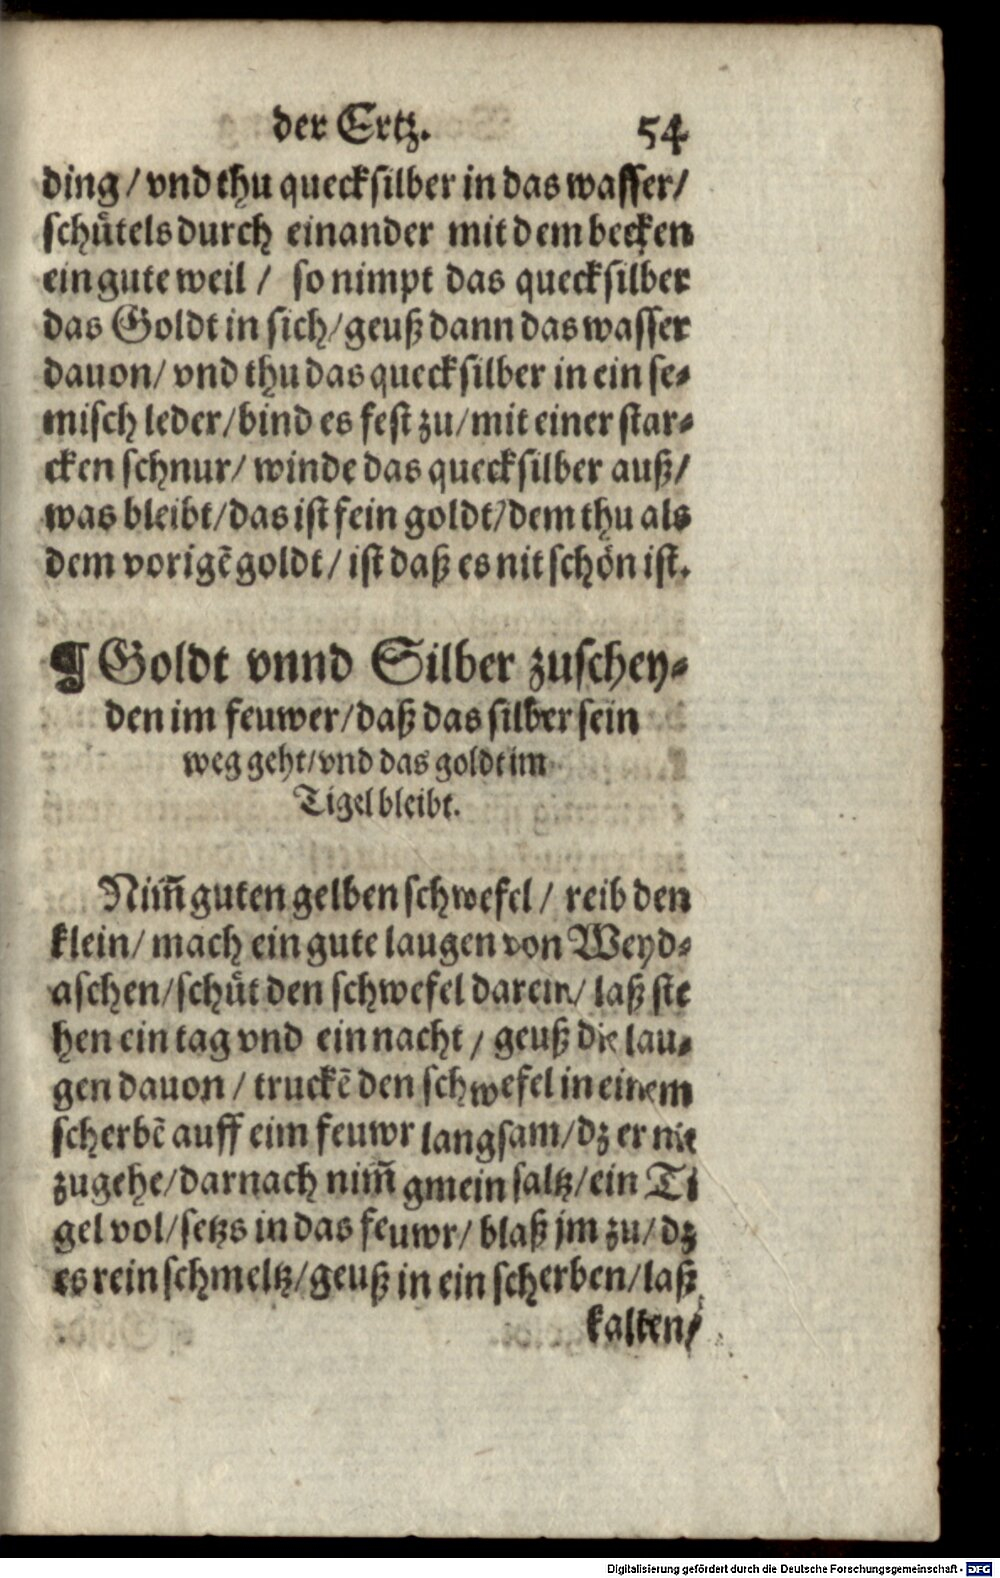 der Ertz. 54
ding / vnd thu quecksilber in das wasser /
schuͤtels durch einander mit dem becken
ein gute weil / so nimpt das quecksilber
das Goldt in sich / geuß dann das wasser
dauon / vnd thu das quecksilber in ein se⸗
misch leder / bind es fest zu / mit einer star⸗
cken schnur / winde das quecksilber auß /
was bleibt / das ist fein goldt / dem thu als
dem vorigẽ goldt / ist daß es nit schoͤn ist.
¶ Goldt vnnd Silber zuschey⸗
den im feuwer / daß das silber sein
weg geht / vnd das goldt im
Tigel bleibt.
Nim̃ guten gelben schwefel / reib den
klein / mach ein gute laugen von Weyd⸗
aschen / schuͤt den schwefel darein / laß ste
hen ein tag vnd ein nacht / geuß die lau⸗
gen dauon / truckẽ den schwefel in einem
scherbẽ auff eim feuwr langsam / dz er nit
zugehe / darnach nim̃ gmein saltz / ein Ti
gel vol / setzs in das feuwr / blaß jm zu / dz
es rein schmeltz / geuß in ein scherben / laß
kalten /
Digitalisierung gefördert durch die Deutsche Forschungsgemeinschaft - DFG